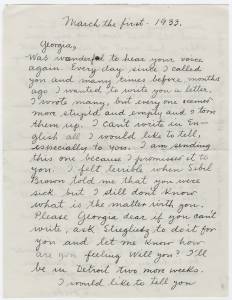 March the first - 1933.
Georgia,
Was wonderful to hear your voice
again. Every day since I called
you and many times before, months
ago I wanted to write you a letter.
I wrote many, but every one seemed
more stupid and empty and I tore
them up. I can't write in En-
glish all I would like to tell,
especially to you. I am sending
this one because I promised it to
you. I felt terrible when Sibil
Brown told me that you were
sick but I still don't know
what is the matter with you.
Please Georgia dear if you can't
write, ask Stieglitz to do it for
you and let me know how
are you feeling Will you? I'll
be in Detroit two more weeks.
I would like to tell you